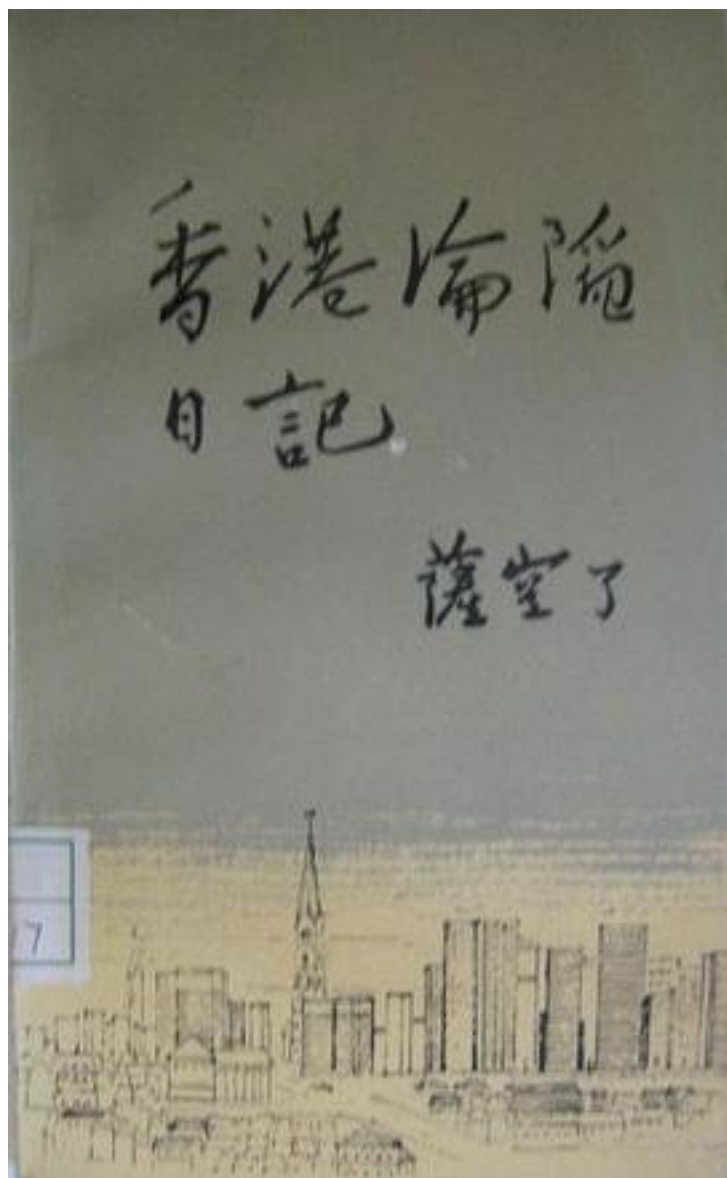 香港淪陷
日記
薩空了
17